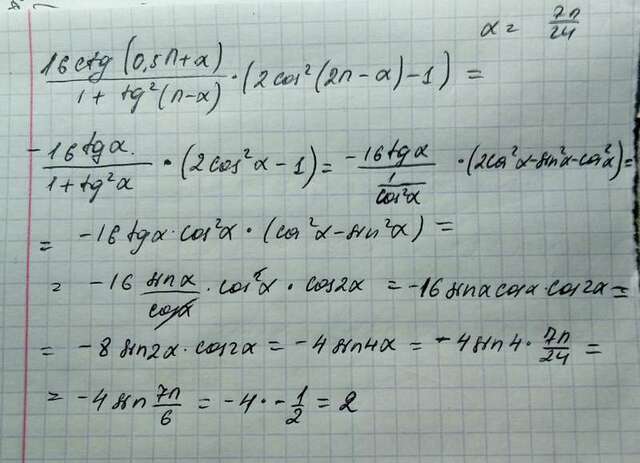 α = 7π/24
16ctg(0,5π+α)/(1 + tg²(π-α)) · (2cos²(2π-α)-1) =
-16tgα/(1+tg²α) · (2cos²α-1) = -16tgα/(1/cos²α) · (2cos²α-sin²α-cos²α) =
= -16tgα·cos²α · (cos²α-sin²α) =
= -16 sinα/cosα · cos²α · cos2α = -16sinαcosα·cos2α =
= -8sin2α·cos2α = -4sin4α = -4sin4·7π/24 =
= -4sin7π/6 = -4·-1/2 = 2